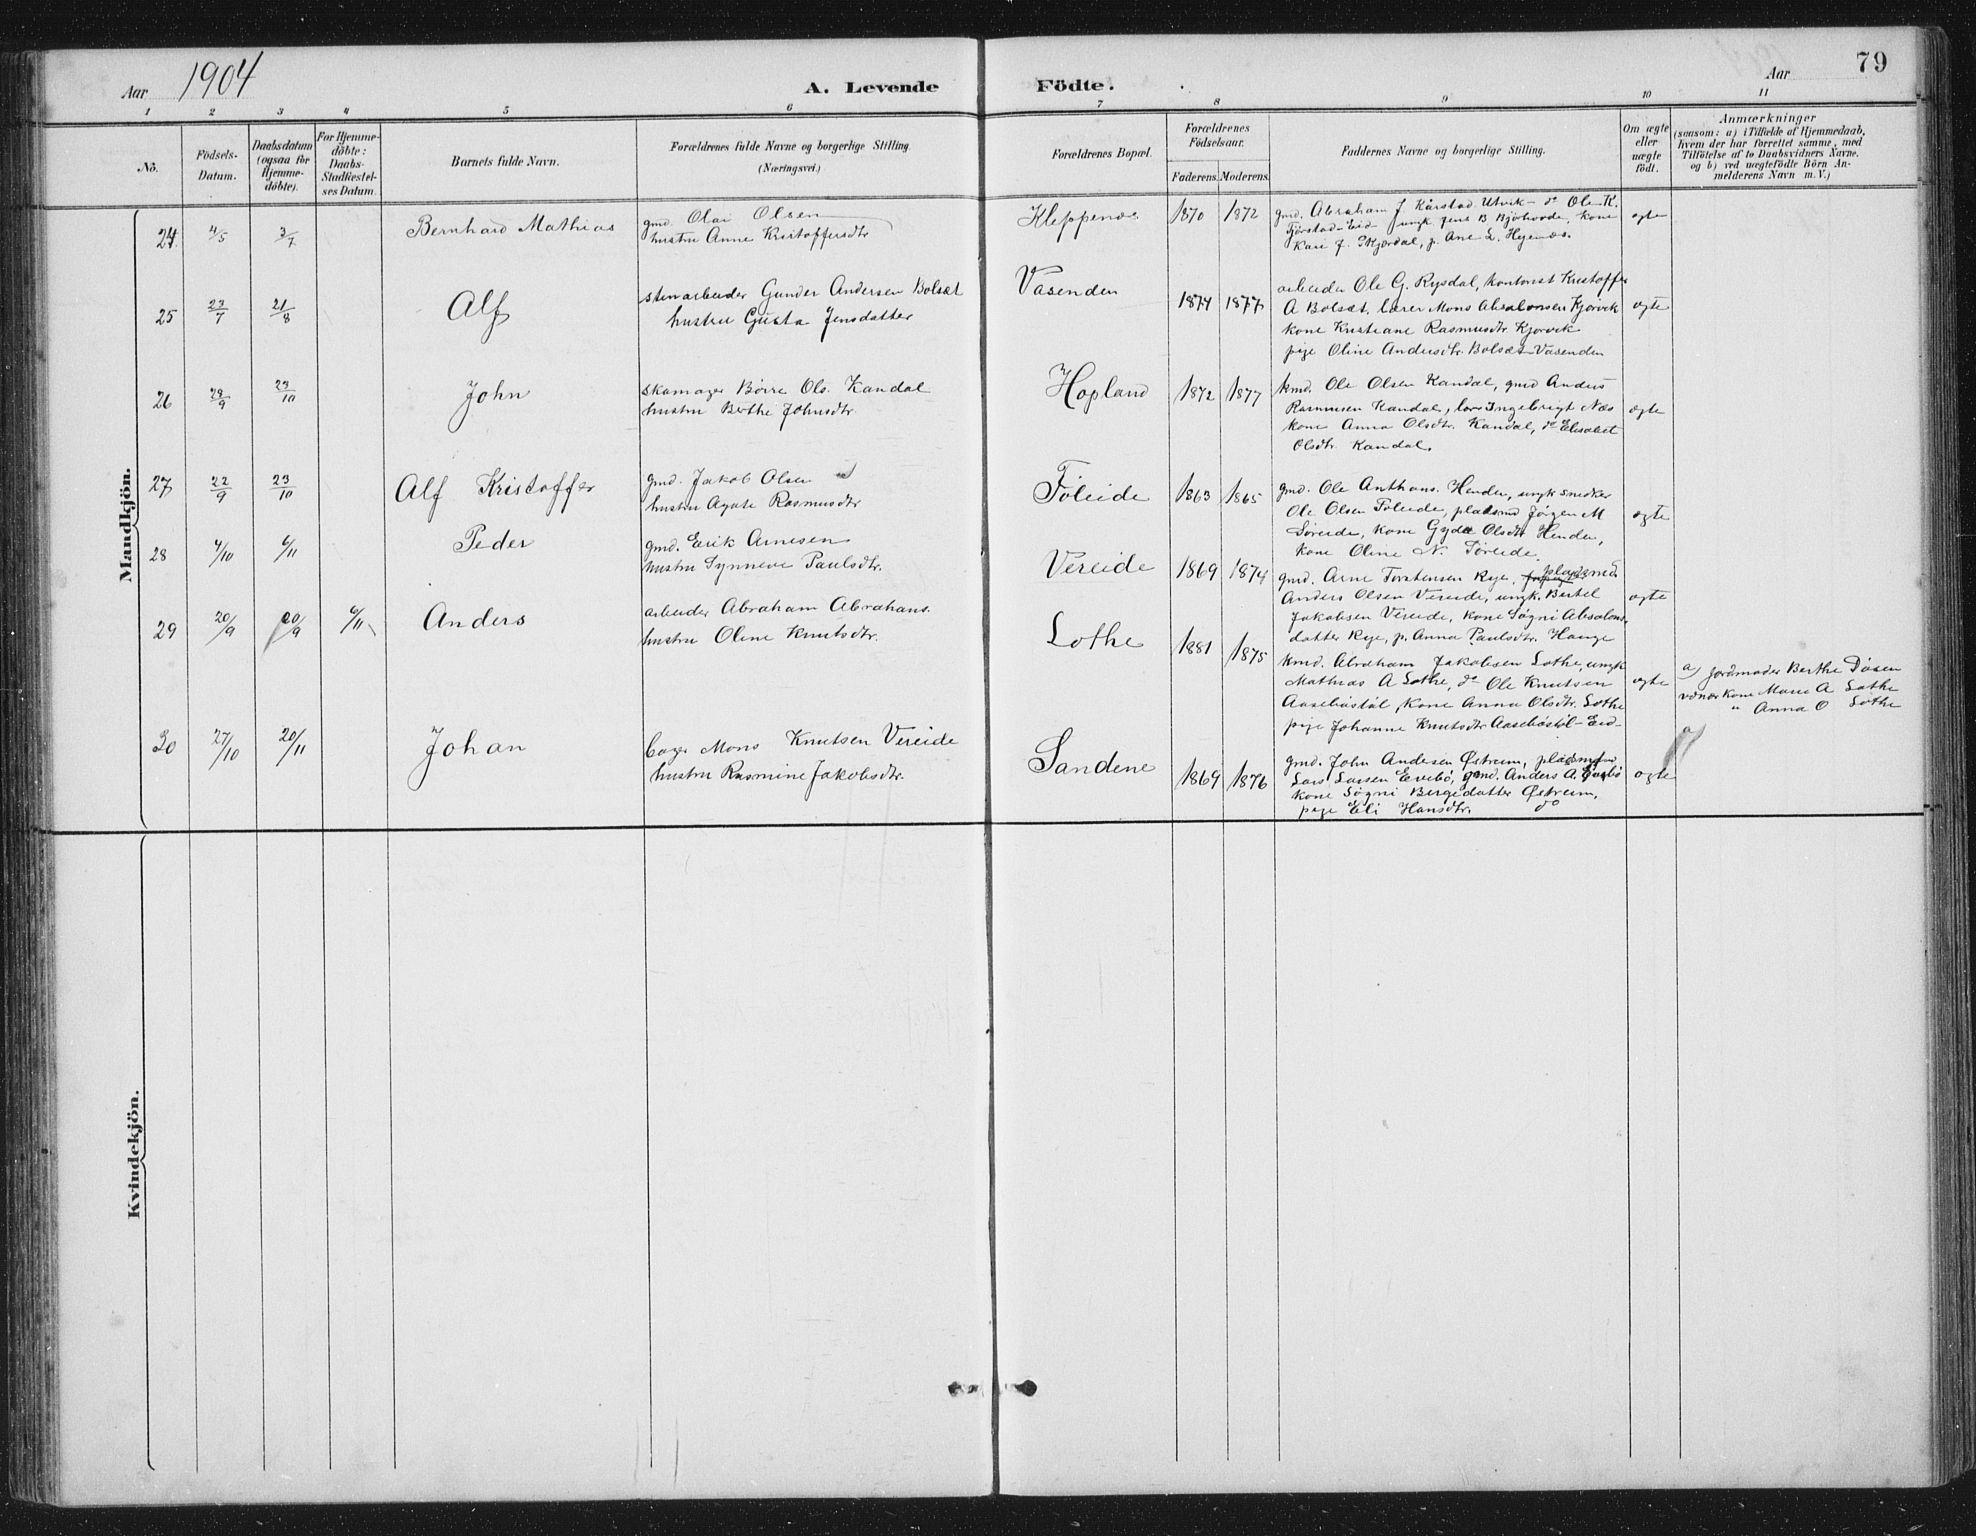 Aar 1904 A. Levende Födte. Aar 79
1 2 3 4 5 6 7 8 9 10 11
No.
Födsels-Datum.
Daabsdatum (ogsaa for Hjemme-döbte).
For Hjemme-döbte: Daabs-Stadfæstel-ses Datum.
Barnets fulde Navn.
Forældrenes fulde Navne og borgerlige Stilling.
(Næringsvei.)
Forældrenes Bopæl.
Forældrenes Födselsaar.
Faderens. Moderens.
Faddernes Navne og borgerlige Stilling.
Om ægte eller uægte födt.
Anmærkninger
(saasom: a) i Tilfælde af Hjemmedaab,
hvem der har forrettet samme, med
Tilföielse af to Daabsvidners Navne.
og b) ved uægtefödte Börn An-
melderens Navn m. V.)
Mandkjön.
24 4/5 3/7 Bernhard Mathias
gmd. Olai Olsen
hustru Anne Kristoffersdtr
Kleppenes 1870 1872
gmd. Abraham J Kårstad Utvik - do Ole K.
Fjørstad - Eid ungk Jens B Bjørhovde, kone
Kari J. Skjørdal, p. Ane L. Hyenæs.
ægte
25 23/7 21/8 Alf
stenarbeider Gunder Andersen Bolsæt
hustru Gusta Jensdatter
Vasenden 1874 1877
arbeider Ole G. Rysdal, kontorist Kristoffer
A Bolsæt, lærer Mons Absalonsen Kjørvik
kone Kristiane Rasmusdtr. Kjørvik
pige Oline Andersdtr. Bolsæt - Vasenden
ægte
26 28/9 23/10 John
skomager Børre Ols. Kandal
hustru Berthe Johnsdtr.
Hopland 1872 1877
kmd. Ole Olsen Kandal, gmd Anders
Rasmusen Kandal, lærer Ingebrigt Næs
kone Anna Olsdtr. Kandal, do Elisabet
Olsdtr. Kandal.
ægte
27 22/9 23/10 Alf Kristoffer
gmd. Jakob Olsen
hustru Agate Rasmusdtr
Føleide 1863 1865
gmd. Ole Anthons. Henden, ungk snedker
Ole Olsen Føleide, pladsmd Jørgen M
Søreide, kone Gyda Olsdtr Henden,
kone Oline N. Søreide.
ægte
28 4/10 6/11 Peder
gmd. Erik Arnesen
hustru Synneve Paulsdtr.
Vereide 1869 1874
gmd. Arne Torstensen Rye, pladsmd
Anders Olsen Vereide, ungk. Bertel
Jakobsen Vereide, kone Søgni Absalons
datter Rye, p. Anna Paulsdtr. Hauge
ægte
29 20/9 20/9 6/11 Anders
arbeider Abraham Abrahams.
hustru Oline Knutsdtr.
Lothe 1881 1875
kmd. Abraham Jakobsen Lothe, ungk
Mathias A Lothe, do Ole Knutsen
Aasebøstøl, kone Anna Olsdtr. Lothe
pige Johanne Knutsdtr Aasebøstøl - Eid -
ægte
a) jordmoder Berthe Døsen
vidner kone Marie A Lothe
" Anna O Lothe
30 27/10 20/11 Johan
bager Mons Knutsen Vereide
hustru Rasmine Jakobsdtr.
Sandene 1869 1876
gmd. John Andersen Østreim, pladsmand
Lars Larsen Evebø, gmd. Anders A. Evebø
kone Søgni Bergedatter Østreim,
pige Eli Hansdtr. do
ægte
a
Kvindekjön.